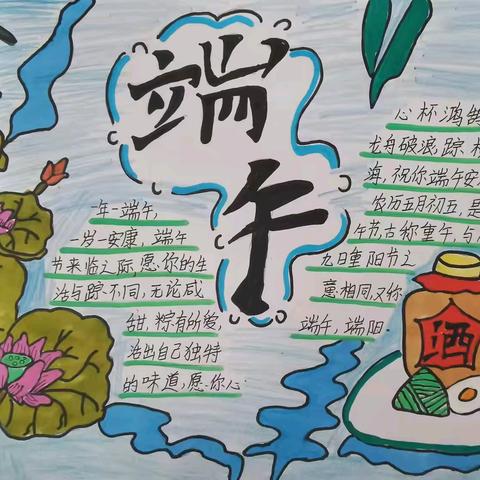 端午
一年一端午,
一岁一安康, 端午
节来临之际,愿你的生
活与踪不同,无论咸
甜,粽有所爱,
活出自己独特
的味道,愿你心
心怀鸿鹄
龙舟破浪,踪
海,祝你端午安
农历五月初五,是
午节古称重午,与
九日重阳节之
意相同,又你
端午,端阳
酒